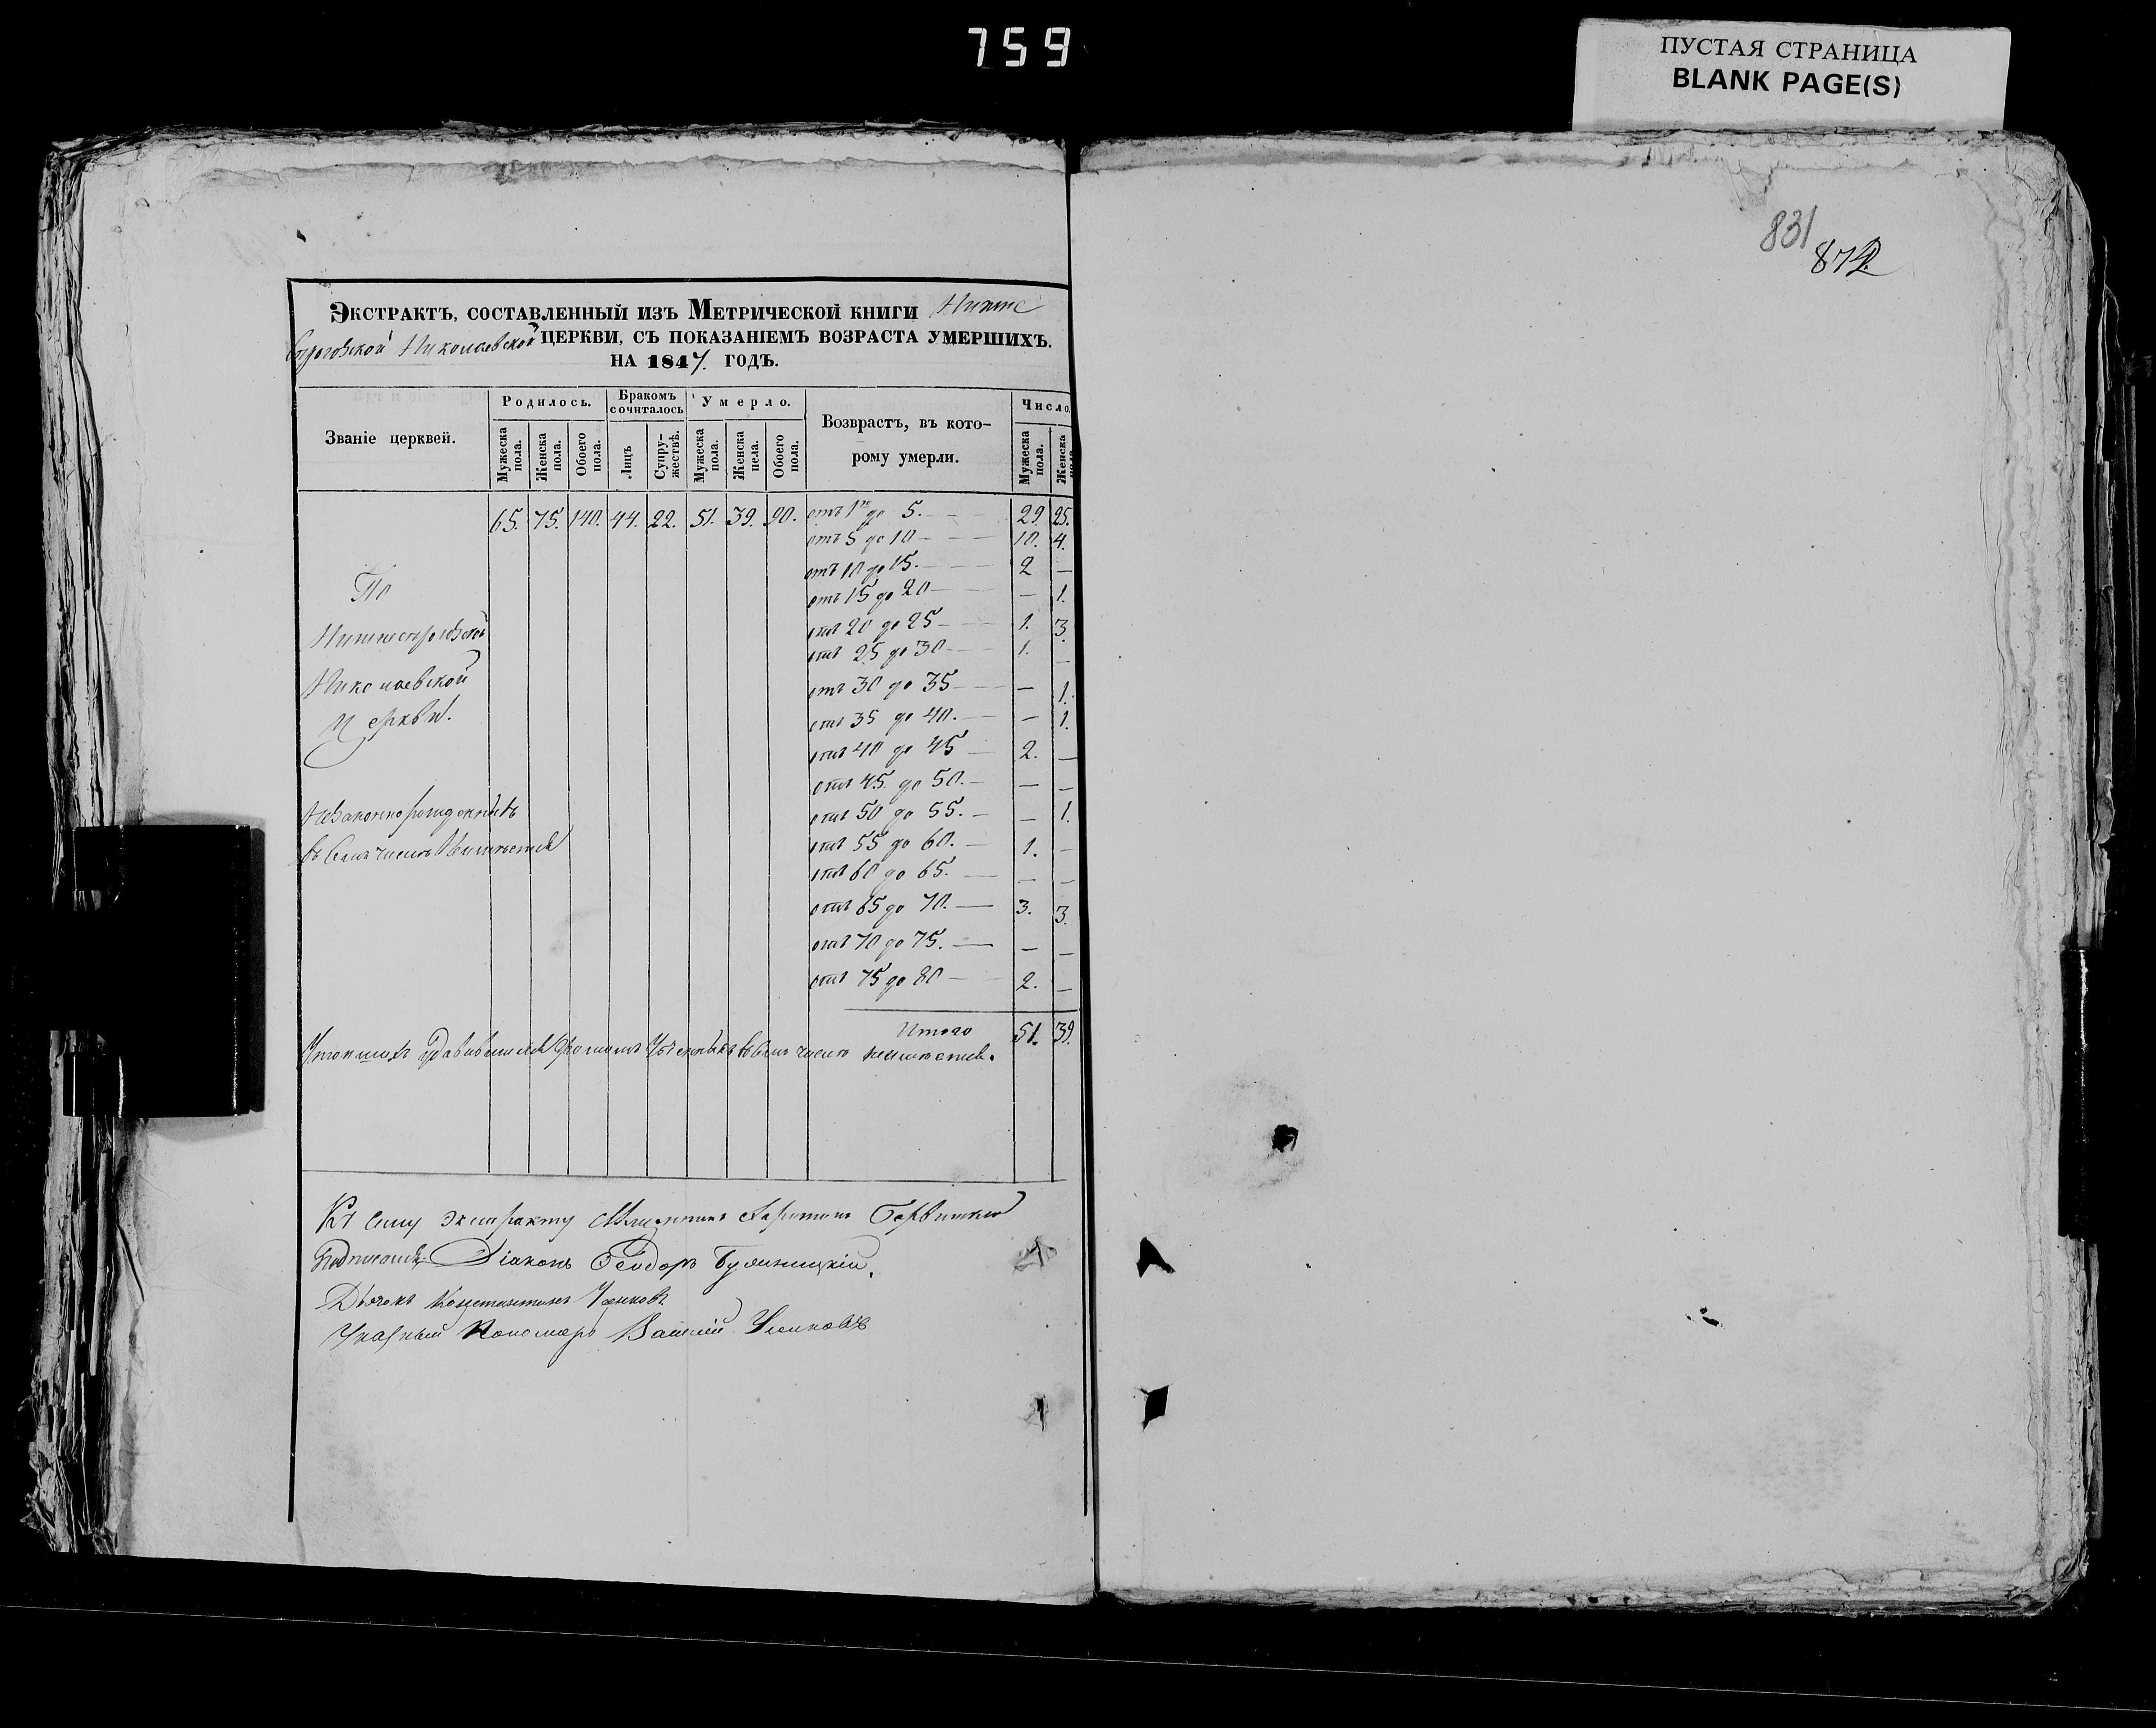 759
ПУСТАЯ СТРАНИЦА
BLANK PAGE(S)
831
872
Экстрактъ, составленный изъ Метрической книги Нижне
Сѣрогозской Николаевской церкви, съ показаніемъ возраста умершихъ.
на 1847. годъ.
Званіе церквей.
Родилось.
Бракомъ сочиталось
Умерло.
Возврастъ, въ которому умерли.
Число.
Мужеска пола. Женска пола. Обоего пола. Лицъ Супружествъ. Мужеска пола. Женска пола. Обоего пола. Мужеска пола. Женска пола.
65. 75. 140. 44. 22. 51. 39. 90. отъ 1го до 5. — 29. 25.
отъ 5 до 10 — 10. 4.
отъ 10 до 15. — 2 —
По
отъ 15 до 20 — — 1.
Нижнесѣрогозской
отъ 20 до 25 — 1. 3.
отъ 25 до 30 — 1. —
Николаевской
отъ 30 до 35 — — 1.
Церкви.
отъ 35 до 40. — — 1.
отъ 40 до 45 — 2. —
отъ 45. до 50. — — —
Незаконнорожденныхъ
отъ 50 до 55. — — 1.
въ семъ числѣ
отъ 55 до 60. — 1. —
отъ 60 до 65. — — —
отъ 65 до 70. — 3. 3.
отъ 70 до 75. — — —
отъ 75 до 80 — 2. —
Итого 51. 39.
Утопшихъ въ семъ числѣ
Къ сему экстракту
Діаконъ Ѳеодоръ
Дьячокъ Константинъ
Указный Пономарь